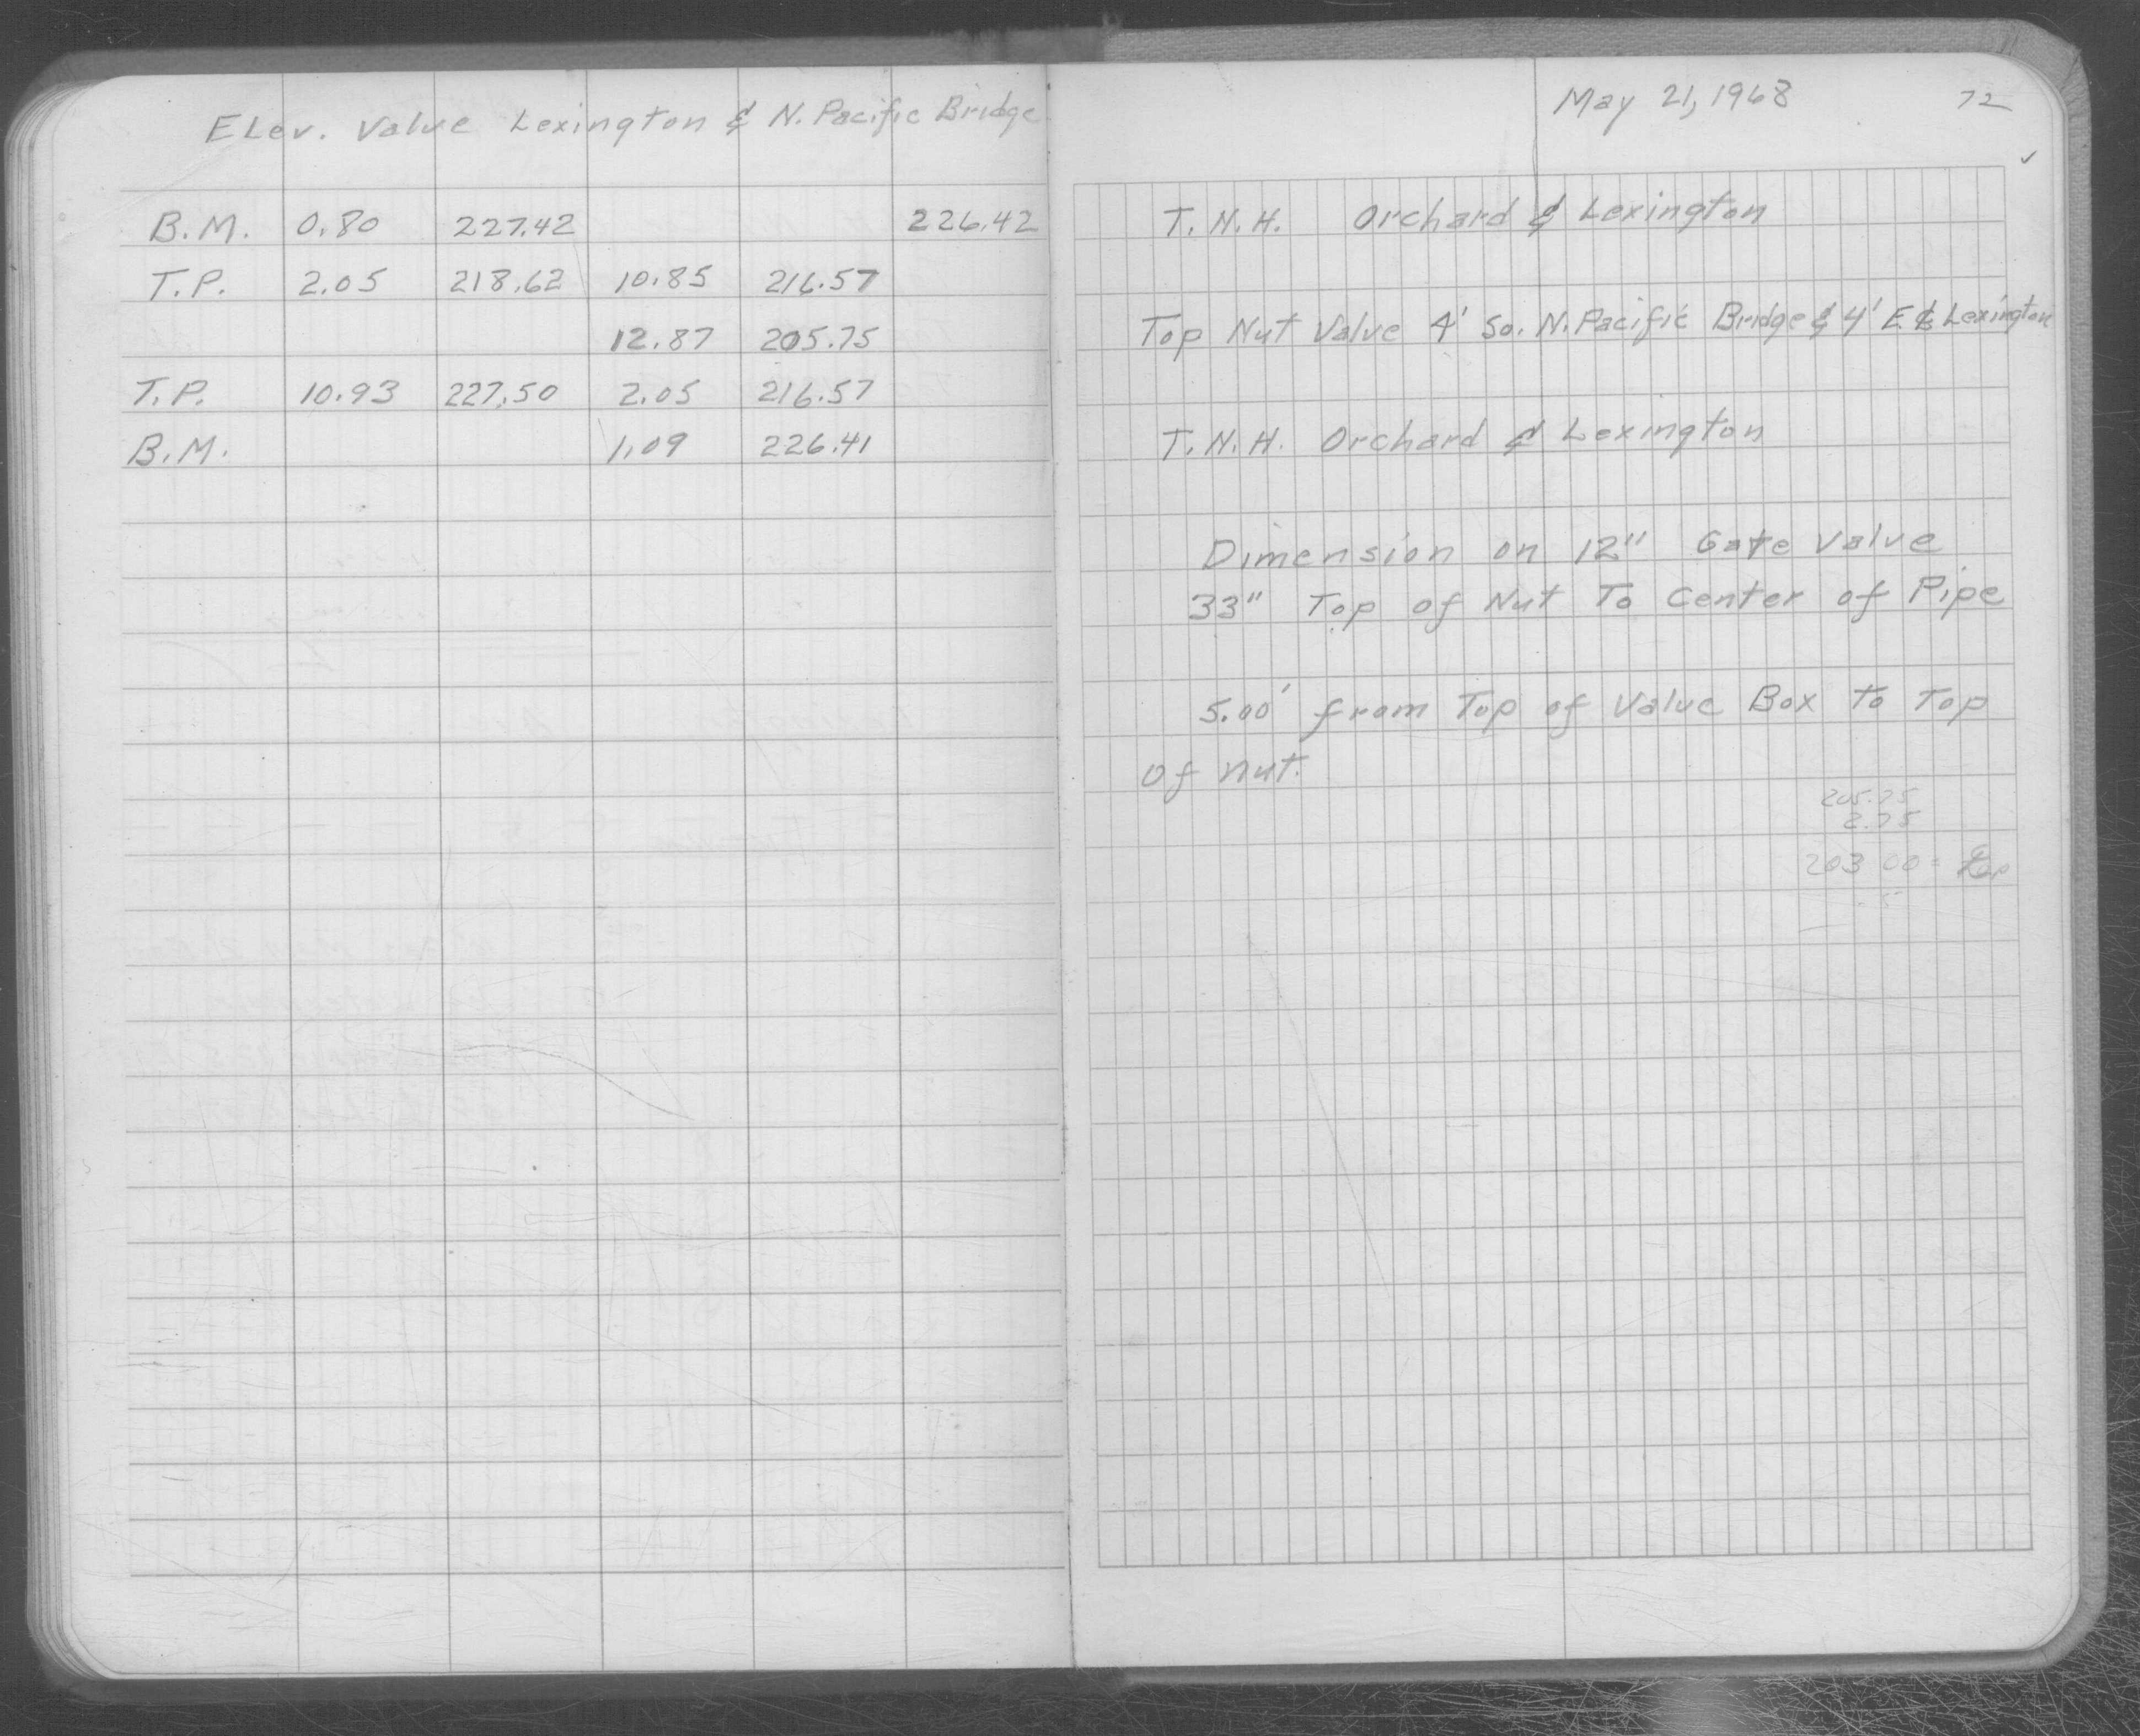 Elev. Valve Lexington & N. Pacific Bridge
B.M. 0.80 227.42 226.42
T.P. 2.05 218.62 10.85 216.57
12.87 205.75
T.P. 10.93 227.50 2.05 216.57
B.M. 1.09 226.41
May 21, 1968 72
✓
T.N.H. Orchard & Lexington
Top Nut Valve 4' So. N. Pacific Bridge & 4' E ℄ Lexington
T.N.H. Orchard & Lexington
Dimension on 12" Gate Valve
33" Top of Nut To Center of Pipe
5.00' from Top of Valve Box to Top
Of Nut.
205.75
2.75
203.00 =